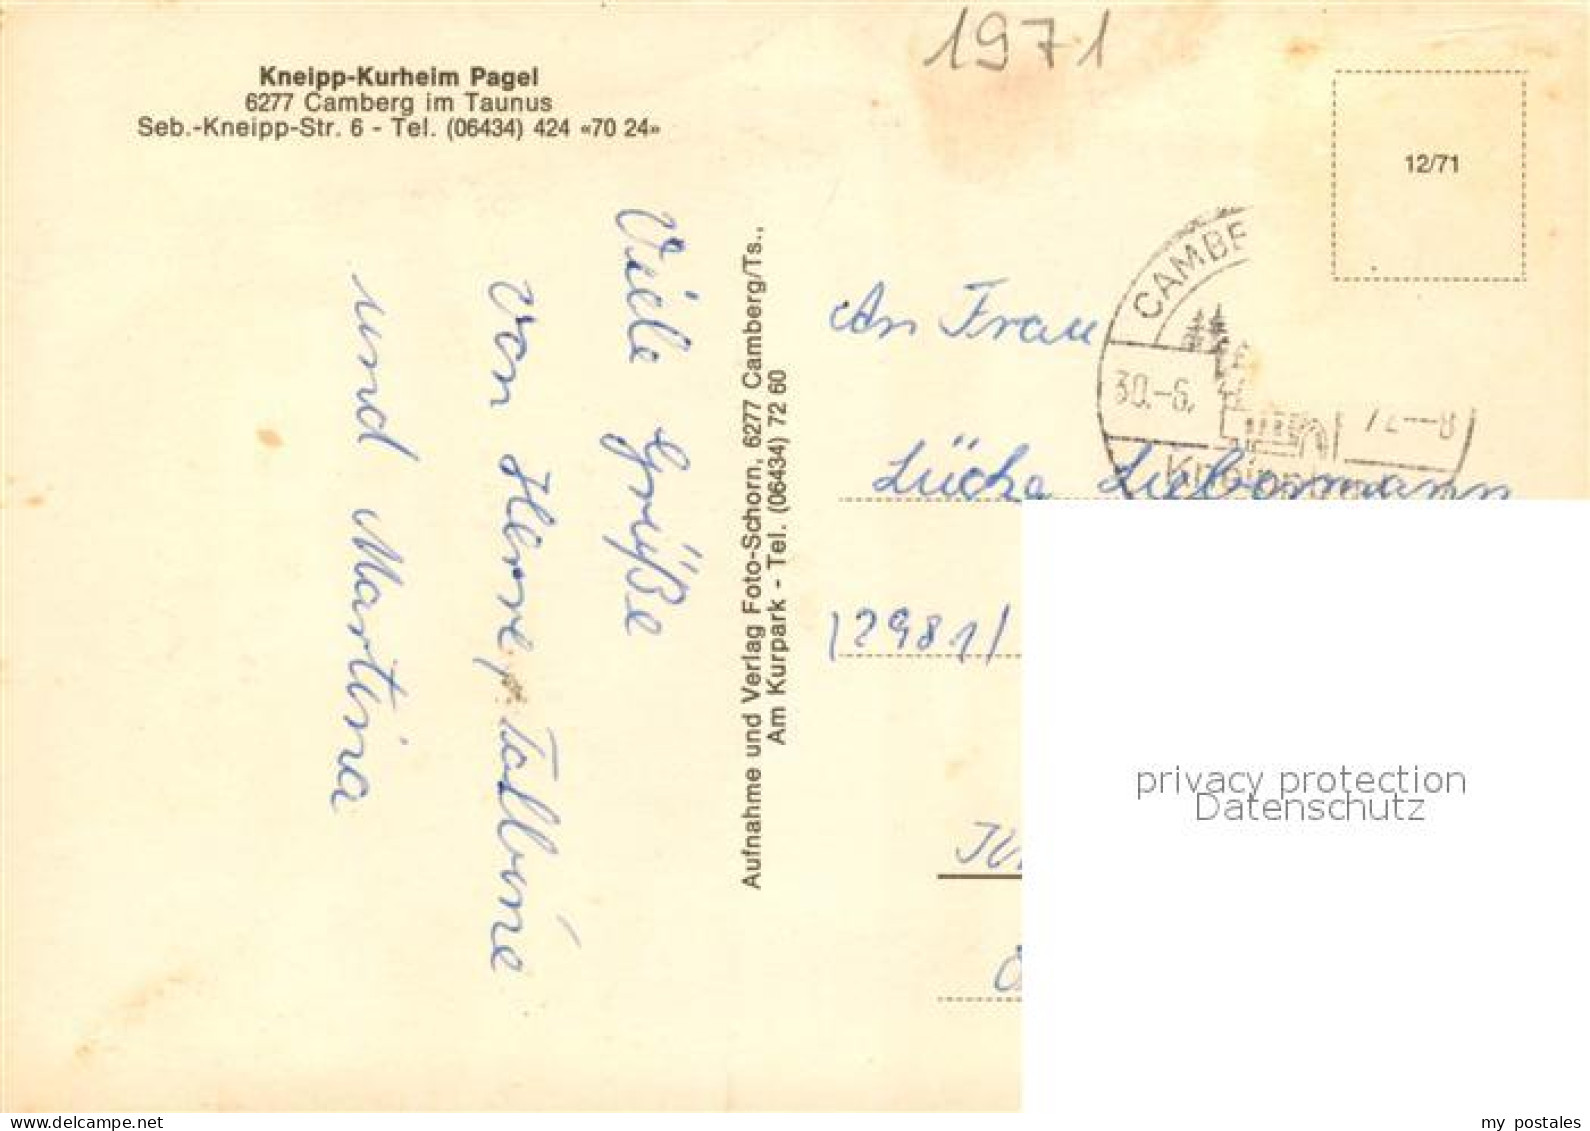 1971
Kneipp-Kurheim Pagel
6277 Camberg im Taunus
Seb.-Kneipp-Str. 6 - Tel. (06434) 424 «70 24»
12/71
Viele Grüße
von
und Martina
Aufnahme und Verlag Foto-Schorn, 6277 Camberg/Ts.,
Am Kurpark - Tel. (06434) 72 60
CAMBE
30.-6.
An Frau
Lücke Liebermann
12981/
privacy protection
Datenschutz
my postales